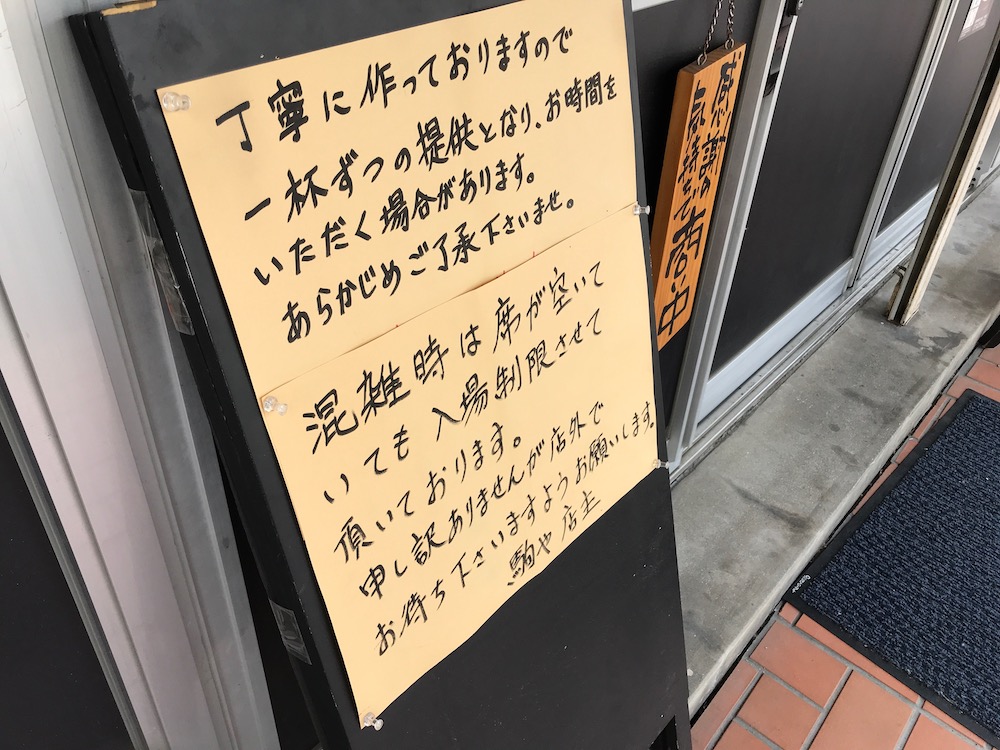 丁寧に作っておりますので
一杯ずつの提供となり、お時間を
いただく場合があります。
あらかじめご了承下さいませ。
混雑時は席が空いて
いても入場制限させて
頂いております。
申し訳ありませんが店外で
お待ち下さいますようお願いします。
駒や店主
感謝の
気持ちで商い中